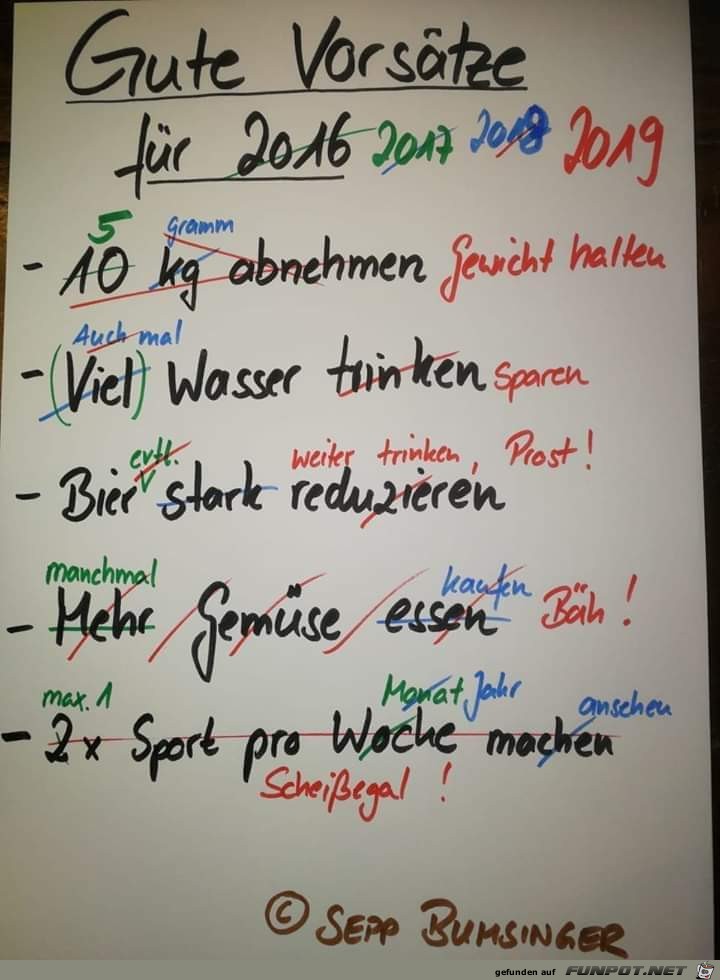 Gute Vorsätze
für 2016 2017 2018 2019
5 gramm
- 10 kg abnehmen Gewicht halten
Auch mal
- (Viel) Wasser trinken sparen
evtl. weiter trinken, Prost!
- Bier stark reduzieren
manchmal kaufen
- Mehr Gemüse essen Bäh!
max. 1 Monat Jahr anschen
- 2x Sport pro Woche machen
Scheißegal!
© SEPP BUMSINGER
gefunden auf FUNPOT.NET